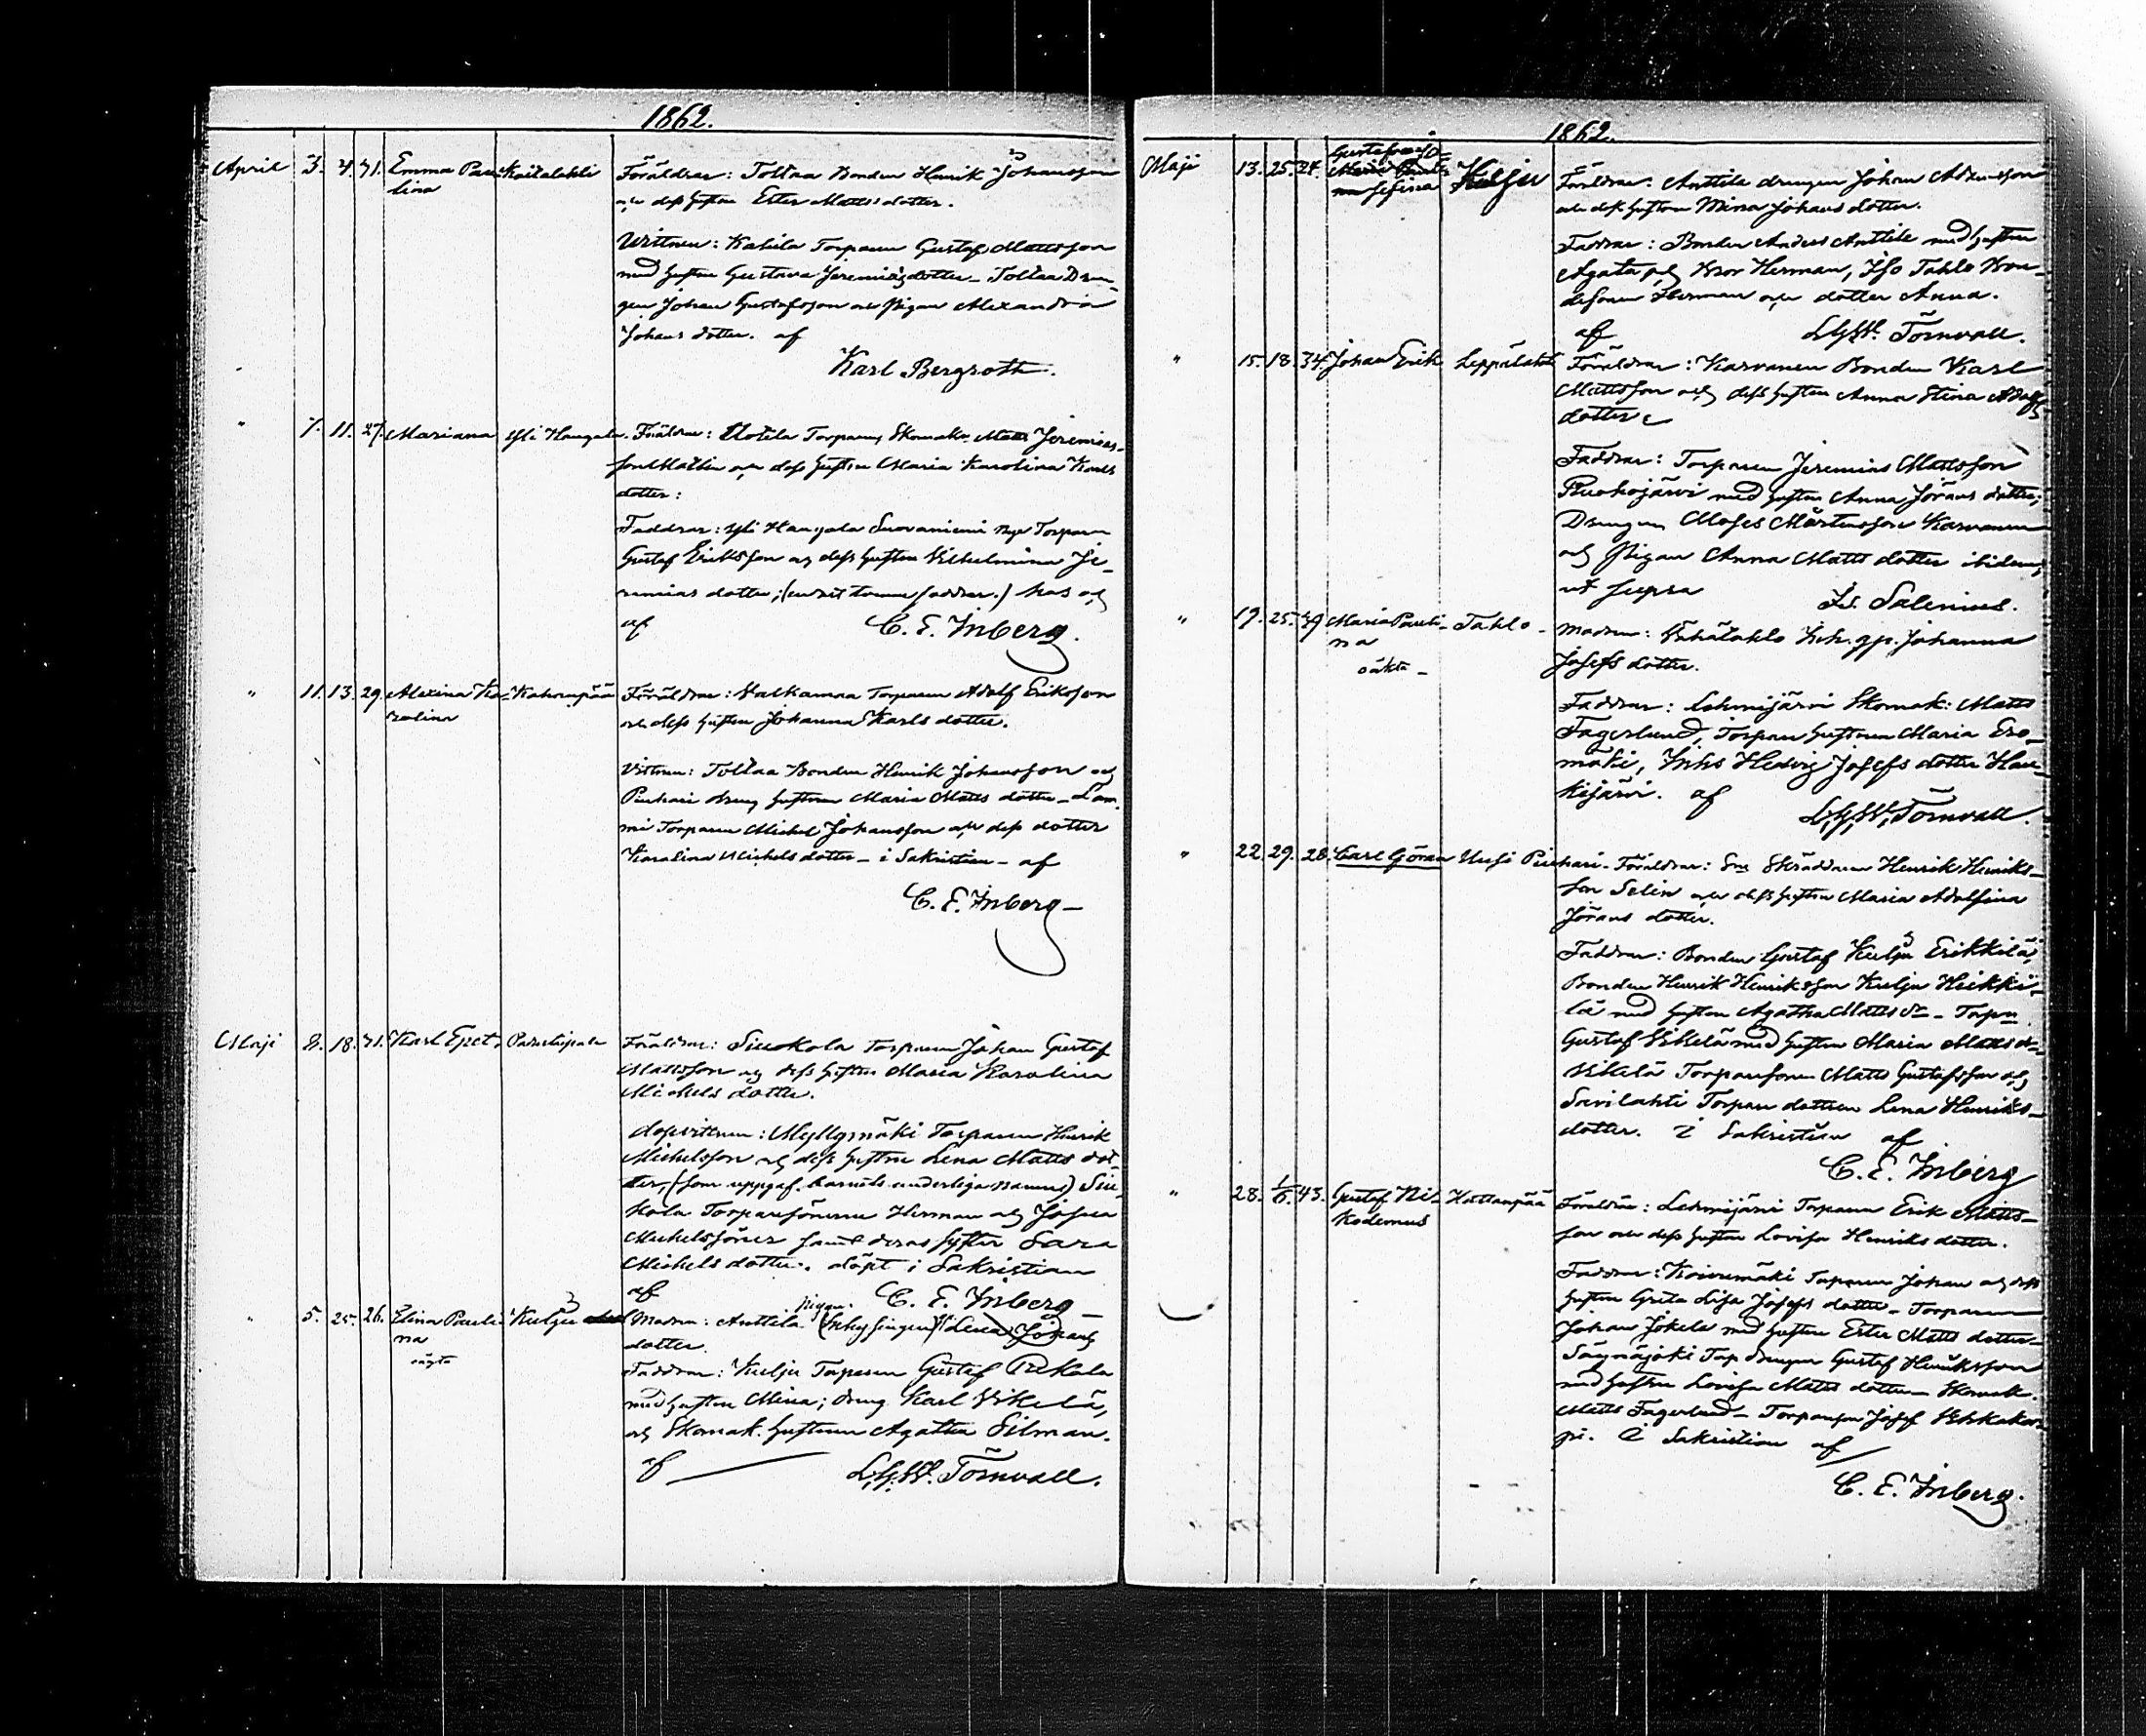 1862.
April 3. 4. 41. Emma Pau- Koitalahti Föräldrar: Tottaa Bonden Henrik Johansson
lina och dess hustru Ester Mattsdotter.
Wittnen: Kahila Torparen Gustaf Mattsson
med hustru Gustava Jeremiæ dotter - Tottaa Dren-
gen Johan Gustafsson och Pigan Alexandra
Johans dotter. af
Karl Bergroth.
" 7. 11. 27. Mariana Yli Haugala. Föräldrar: Torparen Skomak. Matts Jeremias-
son och dess hustru Maria Karolina Karls
dotter:
Faddrar: Yli Haugala Suovaniemi Torparen
Gustaf Eriksson och dess hustru Vilhelmina Je-
remias dotter;
af C. E. Inberg.
" 11. 13. 29. Alexina Ka- Kahompää Föräldrar: Torparen Adolf Eriksson
rolina och dess hustru Johanna Karls dotter.
Vittnen: Tottaa Bonden Henrik Johansson och
Piukari dreng hustrun Maria Matts dotter - Lam-
mi Torparen Michel Johansson och dess dotter
Karolina Michels dotter - i Sakristian - af
C. E. Inberg -
Maji 8. 18. 41. Karl Föräldrar: Siukola Torparen Johan Gustaf
Mattsson och dess hustru Maria Karolina
Michels dotter.
Dopvittnen: Myllymäki Torparen Henrik
Michelsson och dess hustru Lena Matts dot-
ter, (som uppgaf barnets underliga namn) Siu-
kola Torparesönerne Herman och Josua
Michelssöner samt deras syster Sara
Michels dotter. döpt i Sakristian
af C. E. Inberg -
" 5. 25. 26. Elina Pauli- Kulju Modren: Anttila pigan Lena Johans
na dotter.
oägta Faddrar: Kulju Torparen Gustaf Pekola
med hustru Mina; dreng Karl Vikelä,
och Skomak. hustrun Agatha Silman.
af L. G. W. Törnvall.
1862.
Maji 13. 25. 24. Gustafva Jo-
sefina Kulju Föräldrar: Anttila drengen Johan Adamsson
och dess hustru Mina Johans dotter.
Faddrar: Bonden Anders Anttila med hustru
Agata och Bror Herman, Iso Tahlo Bon-
desonen Herman och dotter Anna.
af L. G. W. Törnvall.
" 15. 18. 34. Johan Erik Leppälahti Föräldrar: Karvanen Bonden Karl
Mattsson och dess hustru Anna Stina Adolfs
dotter
Faddrar: Torparen Jeremias Mattsson
Ruohojärvi med hustru Anna Jörans dotter;
Drengen Moses Mårtensson Karvanen
och Pigan Anna Matts dotter ibidem,
ut supra Is. Salenius.
" 19. 25. 29 Maria Pauli- Tahlo - Modren: Vähätahlo Inh. qp. Johanna
na Josefs dotter.
oäkta - Faddrar: Lehmijärvi Skomak: Matts
Fagerlund, Torpare hustrun Maria Ero-
mäki, Inhs Hedvig Josefs dotter Hau-
kijärvi. af L. G. W. Törnvall.
" 22. 29. 28. Carl Göran Uusi Piukari - Föräldrar: Skräddaren Henrik Henriks-
son Selin och dess hustru Maria Adolfina
Jörans dotter.
Faddrar: Bonden Gustaf Kulju Erikkilä,
Bonden Henrik Henriksson Kulju Heikki-
lä med hustru Agatha Matts dr - Torpn
Gustaf Vikelä med hustru Maria Matts dr -
Vikelä Torparesonen Matts Gustafsson och
Savilahti Torpare dottren Lena Henriks-
dotter. I Sakristian af
C. E. Inberg
" 28. 1/6. 43. Gustaf Ni- Hattanpää Föräldrar: Lehmijärvi Torparen Erik Matts-
kodemus son och dess hustru Lovisa Henriks dotter.
Faddrar: Koivumäki Torparen Johan och dess
hustru Greta Lisa Josefs dotter - Torparen
Johan Jokela med hustru Ester Matts dotter -
Säynäjoki Torp drengen Gustaf Henriksson
med hustru Lovisa Matts dotter - Skomak.
Matts Fagerlund - Torparesonen Josef
I Sakristian af
C. E. Inberg.